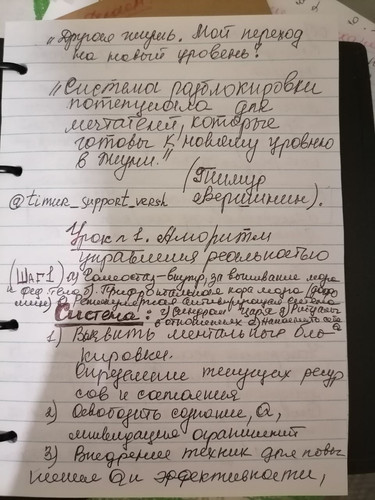 „Другая жизнь. Мой переход
на новый уровень?
„Система разблокировки
потенциала для
мечтателей, которые
готовы к новому уровню
в жизни."
(Тимур
Вершинин).
@timur_support_versh
Урок 1. Алгоритм
управления реальностью
(Шаг 1) а) Гомеостаз - внутр,
б) Префронтальная кора мозга
в) Ретикулярная активирующая система
Система: г) Синдром царя д) Ритуалы
в отношениях
1) Выявить ментальные бло-
кировки.
Определение текущих ресур
сов и состояния
2) Освободить сознание,
ликвидация ограничений
3) Внедрение техник для повы
шения и эффективности,